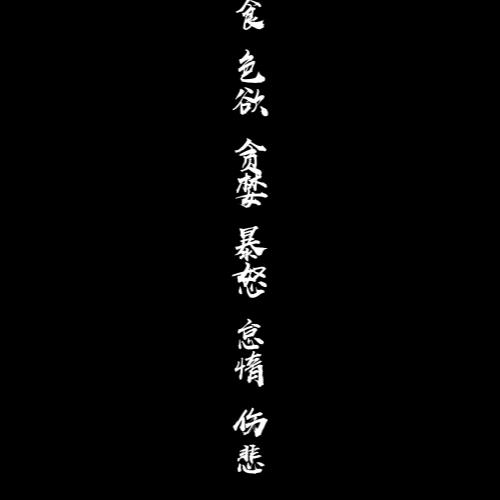 食
色欲
贪婪
暴怒
怠惰
伤悲